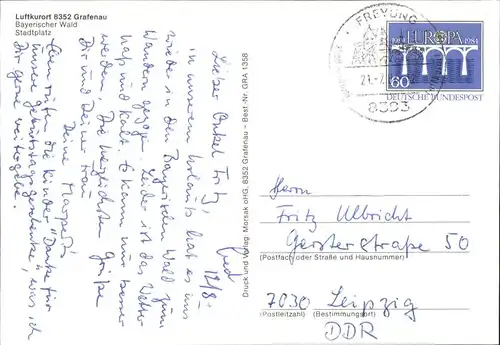 Luftkurort 8352 Grafenau
Bayerischer Wald
Stadtplatz
FREYUNG
21.-7.
8393
1959 EUROPA 1984
60
DEUTSCHE BUNDESPOST
Druck und Verlag Morsak oHG, 8352 Grafenau – Best.-Nr. GRA 1358
Lieber Onkel Fritz,
in unserem Urlaub hat es uns
wieder in den Bayerischen Wald zum
Wandern gezogen. Leider ist das Wetter
naß und kalt. Es kann nur besser
werden. Die herzlichsten Grüße
Dir und Deiner Frau
Deine
Eben rufen die Kinder "Danke für
unsere Geburtstagsgeschenke", was ich
Dir gerne weitergebe.
Herrn
Fritz Ulbricht
Gersterstraße 50
(Postfach) oder Straße und Hausnummer)
7030 Leipzig
(Postleitzahl) (Bestimmungsort)
DDR